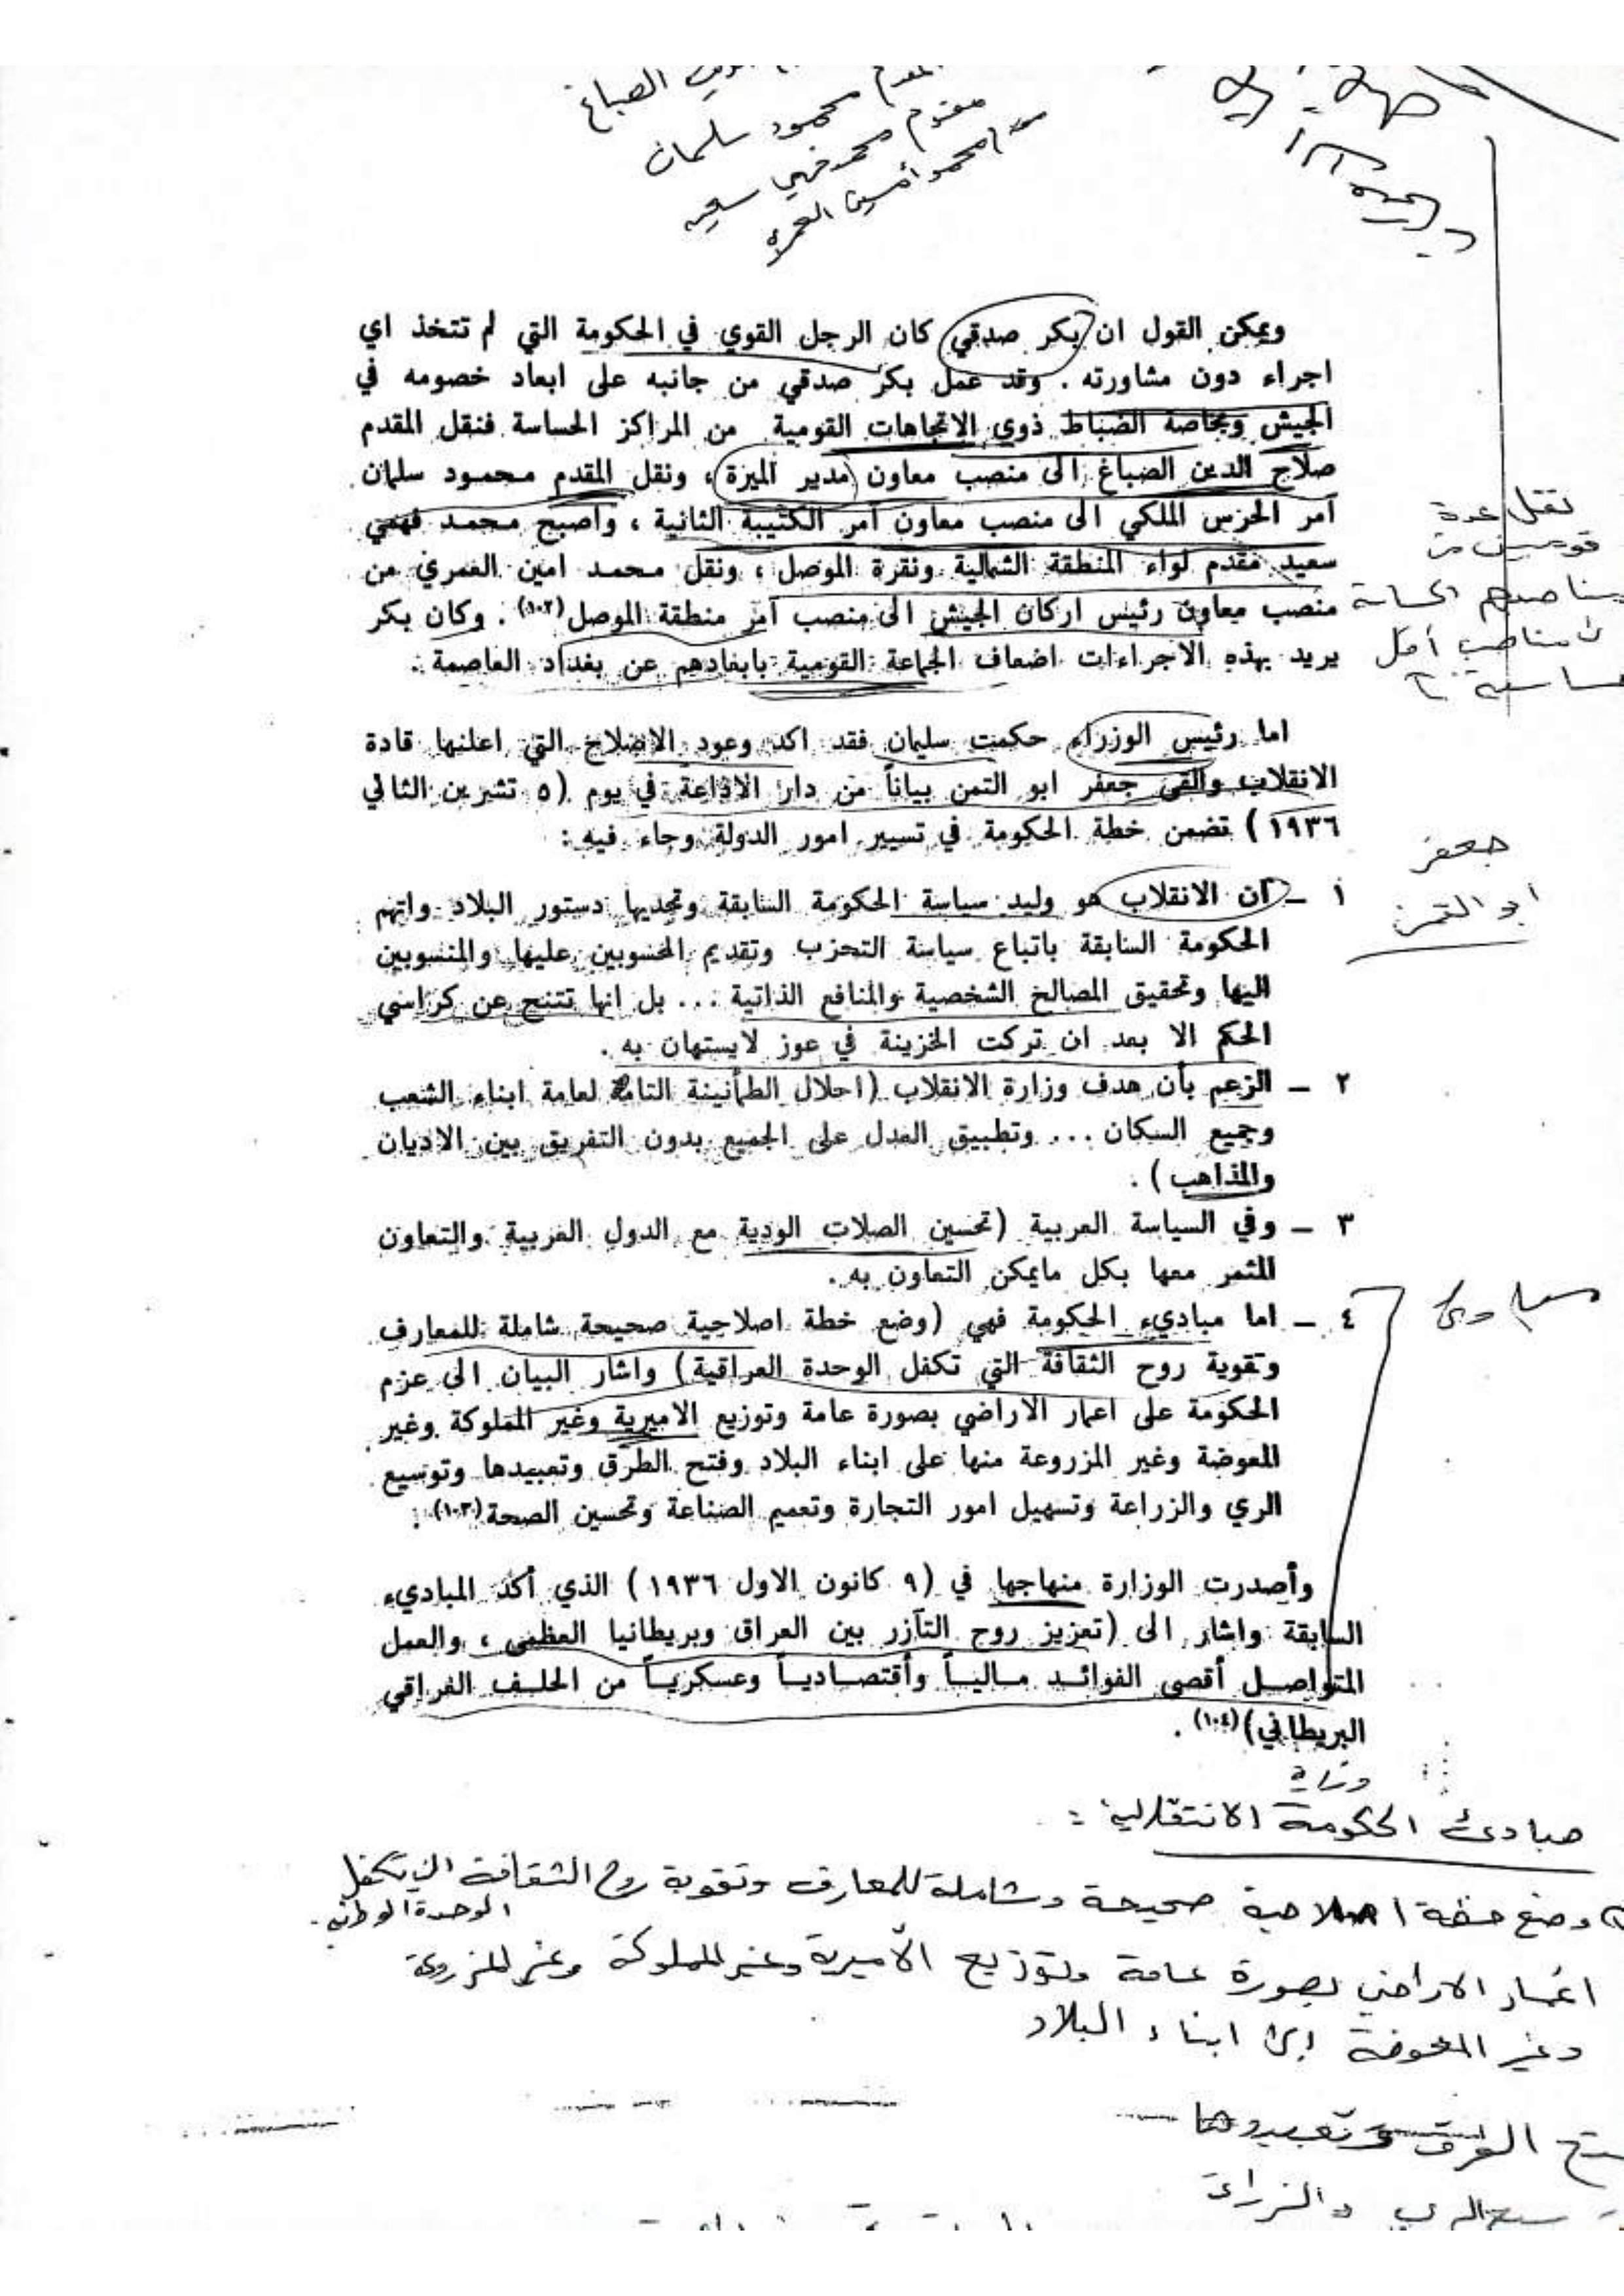 الصباغ
محمود سلمان
مقدم محمد فهمي سعيد
محمد أمين العمري
ويمكن القول ان بكر صدقي كان الرجل القوي في الحكومة التي لم تتخذ اي
اجراء دون مشاورته . وقد عمل بكر صدقي من جانبه على ابعاد خصومه في
الجيش وبخاصة الضباط ذوي الاتجاهات القومية من المراكز الحساسة فنقل المقدم
صلاح الدين الصباغ الى منصب معاون مدير الميزة ، ونقل المقدم محمود سلمان
آمر الحرس الملكي الى منصب معاون آمر الكتيبة الثانية ، واصبح محمد فهمي
سعيد مقدم لواء المنطقة الشمالية ونقرة الموصل ، ونقل محمد امين العمري من
منصب معاون رئيس اركان الجيش الى منصب آمر منطقة الموصل (١٠٢) . وكان بكر
يريد بهذه الاجراءات اضعاف الجماعة القومية بابعادهم عن بغداد العاصمة .
نقل عدة
قوميين من
مناصبهم الحساسة
مناصب أقل
حساسية
اما رئيس الوزراء حكمت سليمان فقد اكد وعود الاصلاح التي اعلنها قادة
الانقلاب والقى جعفر ابو التمن بياناً من دار الاذاعة في يوم (٥ تشرين الثاني
١٩٣٦) تضمن خطة الحكومة في تسيير امور الدولة وجاء فيه :
جعفر
ابو التمن
١ – ان الانقلاب هو وليد سياسة الحكومة السابقة وتحديها دستور البلاد واتهم
الحكومة السابقة باتباع سياسة التحزب وتقديم المحسوبين عليها والمنسوبين
اليها وتحقيق المصالح الشخصية والمنافع الذاتية ... بل انها تتنح عن كراسي
الحكم الا بعد ان تركت الخزينة في عوز لايستهان به .
٢ – الزعم بأن هدف وزارة الانقلاب (احلال الطمأنينة التامة لعامة ابناء الشعب
وجميع السكان ... وتطبيق العدل على الجميع بدون التفريق بين الاديان
والمذاهب ) .
٣ – وفي السياسة العربية (تحسين الصلات الودية مع الدول العربية والتعاون
المثمر معها بكل مايمكن التعاون به .
٤ – اما مباديء الحكومة فهي (وضع خطة اصلاحية صحيحة شاملة للمعارف
وتقوية روح الثقافة التي تكفل الوحدة العراقية) واشار البيان الى عزم
الحكومة على اعمار الاراضي بصورة عامة وتوزيع الاميرية وغير المملوكة وغير
المفوضة وغير المزروعة منها على ابناء البلاد وفتح الطرق وتعبيدها وتوسيع
الري والزراعة وتسهيل امور التجارة وتعميم الصناعة وتحسين الصحة (١٠٣) .
مبادئ
وأصدرت الوزارة منهاجها في (٩ كانون الاول ١٩٣٦) الذي أكد المباديء
السابقة واشار الى (تعزيز روح التآزر بين العراق وبريطانيا العظمى ، والعمل
المتواصل أقصى الفوائد مالياً وأقتصادياً وعسكرياً من الحلف العراقي
البريطاني) (١٠٤) .
وزارة
مبادئ الحكومة الانتقالية :
وضع خطة اصلاحية صحيحة وشاملة للمعارف وتقوية روح الثقافة التي تكفل
الوحدة الوطنية .
اعمار الاراضي بصورة عامة وتوزيع الأميرية وغير المملوكة وغير المزروعة
وغير المفوضة على ابناء البلاد
الطرق وتعبيدها
الري والزراعة